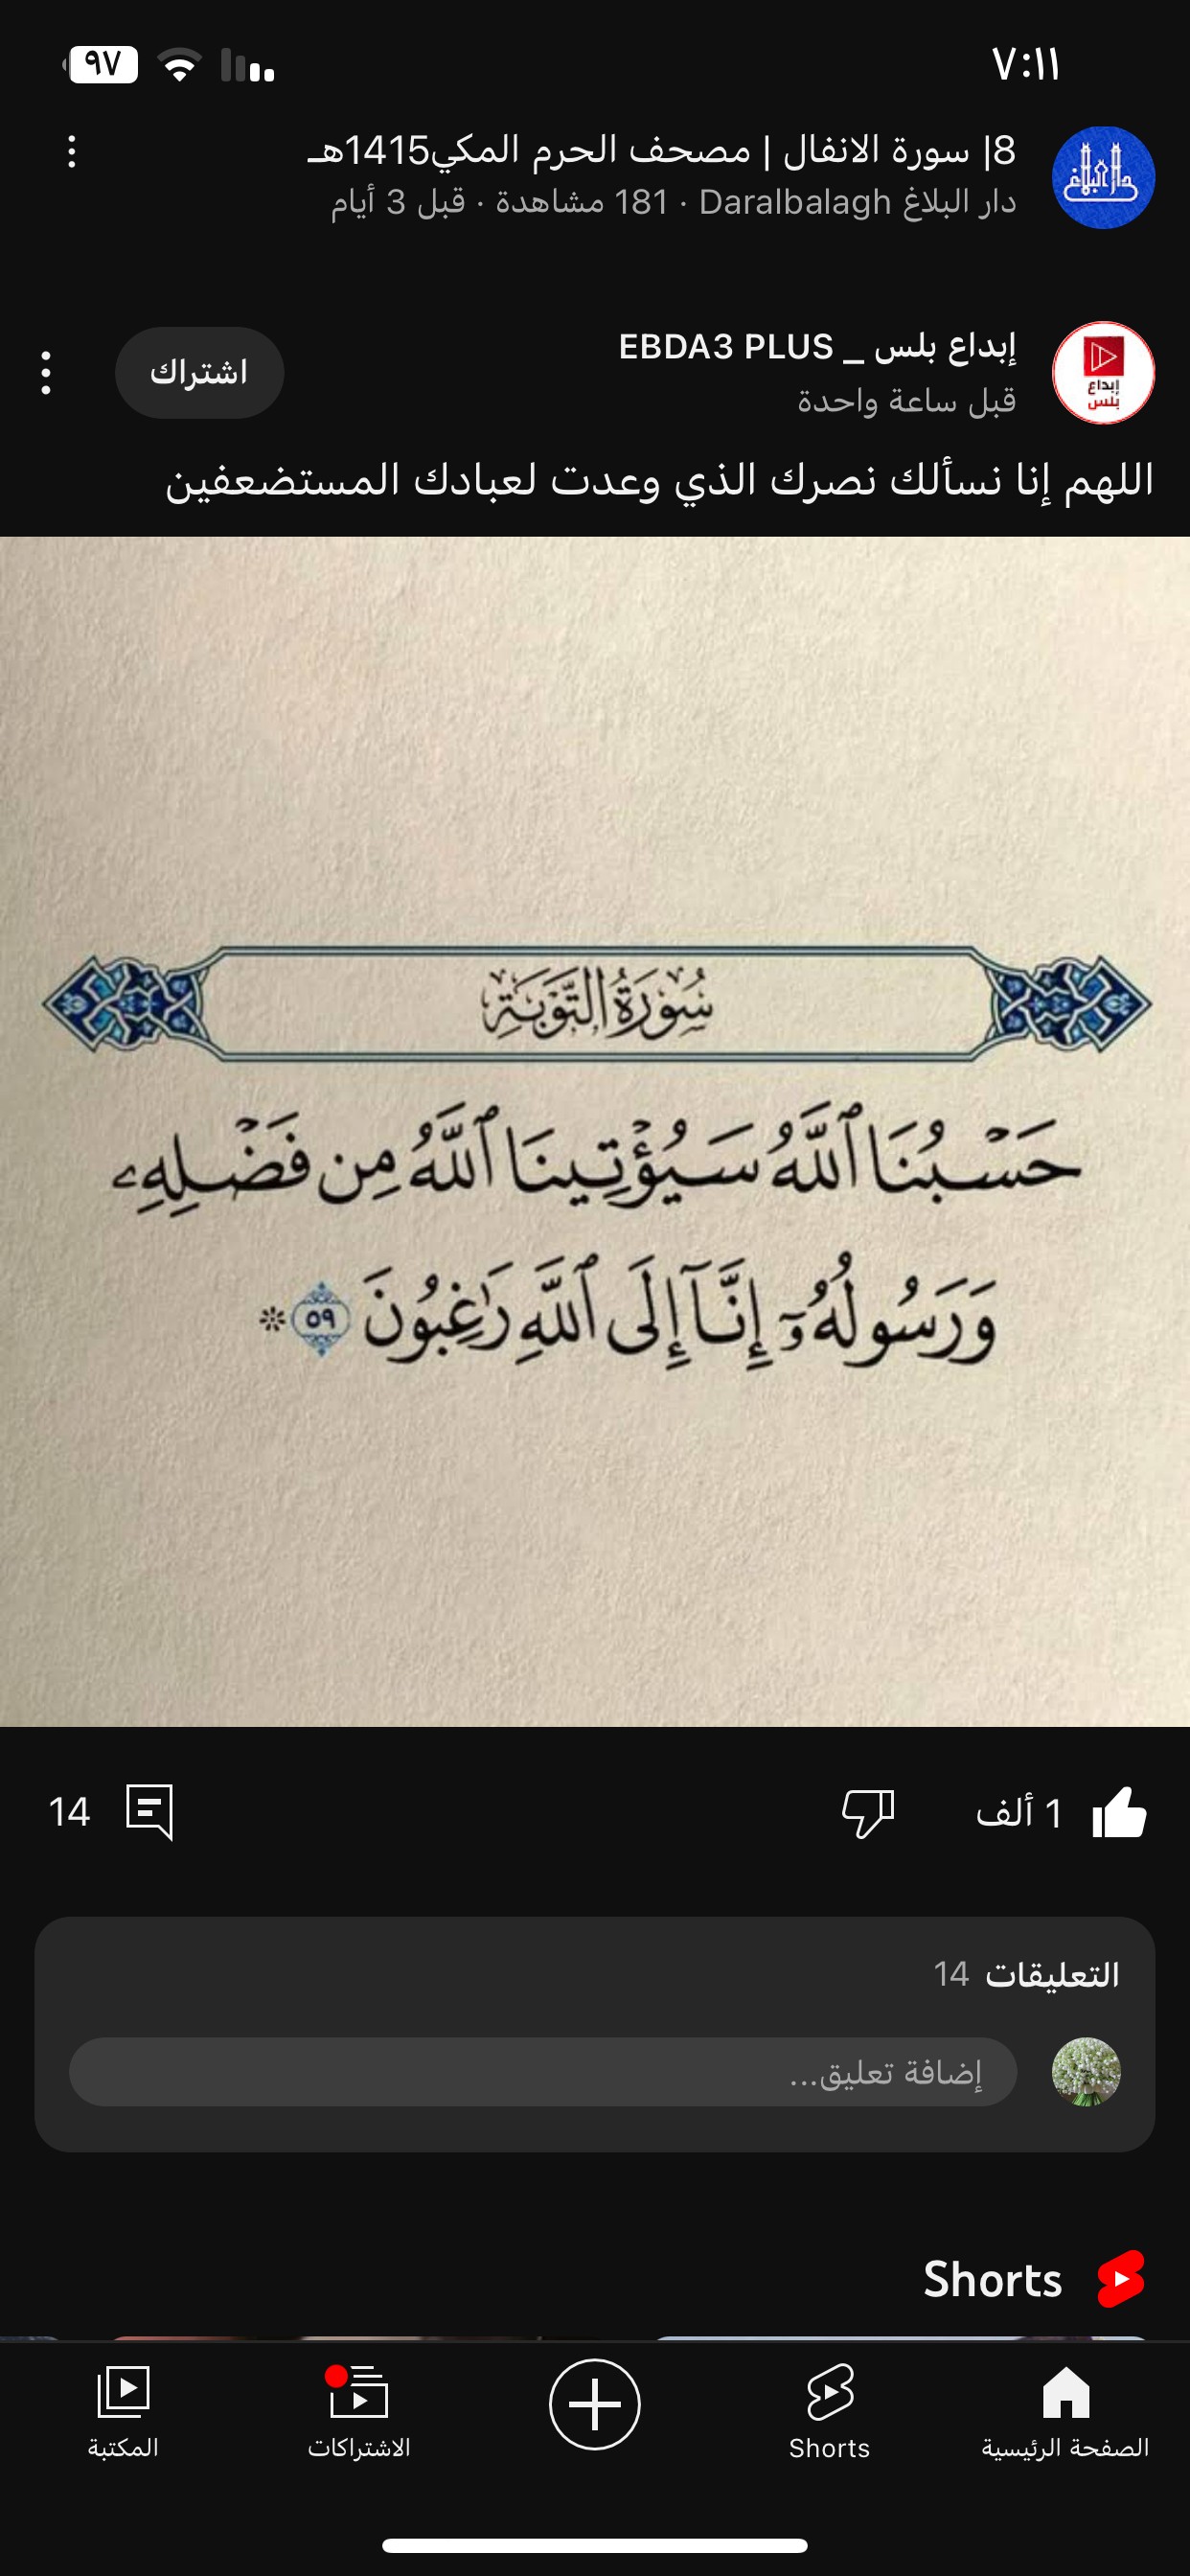 ٧:١١
٩٧
8| سورة الانفال | مصحف الحرم المكي1415هـ
دار البلاغ Daralbalagh · 181 مشاهدة · قبل 3 أيام
دار البلاغ
إبداع بلس _ EBDA3 PLUS
قبل ساعة واحدة
اشتراك
إبداع
بلس
اللهم إنا نسألك نصرك الذي وعدت لعبادك المستضعفين
سُورَةُ التَّوْبَةِ
حَسْبُنَا ٱللَّهُ سَيُؤْتِينَا ٱللَّهُ مِن فَضْلِهِۦ
وَرَسُولُهُۥٓ إِنَّآ إِلَى ٱللَّهِ رَٰغِبُونَ ٥٩ *
1 ألف
14
التعليقات 14
إضافة تعليق...
Shorts
الصفحة الرئيسية
Shorts
الاشتراكات
المكتبة